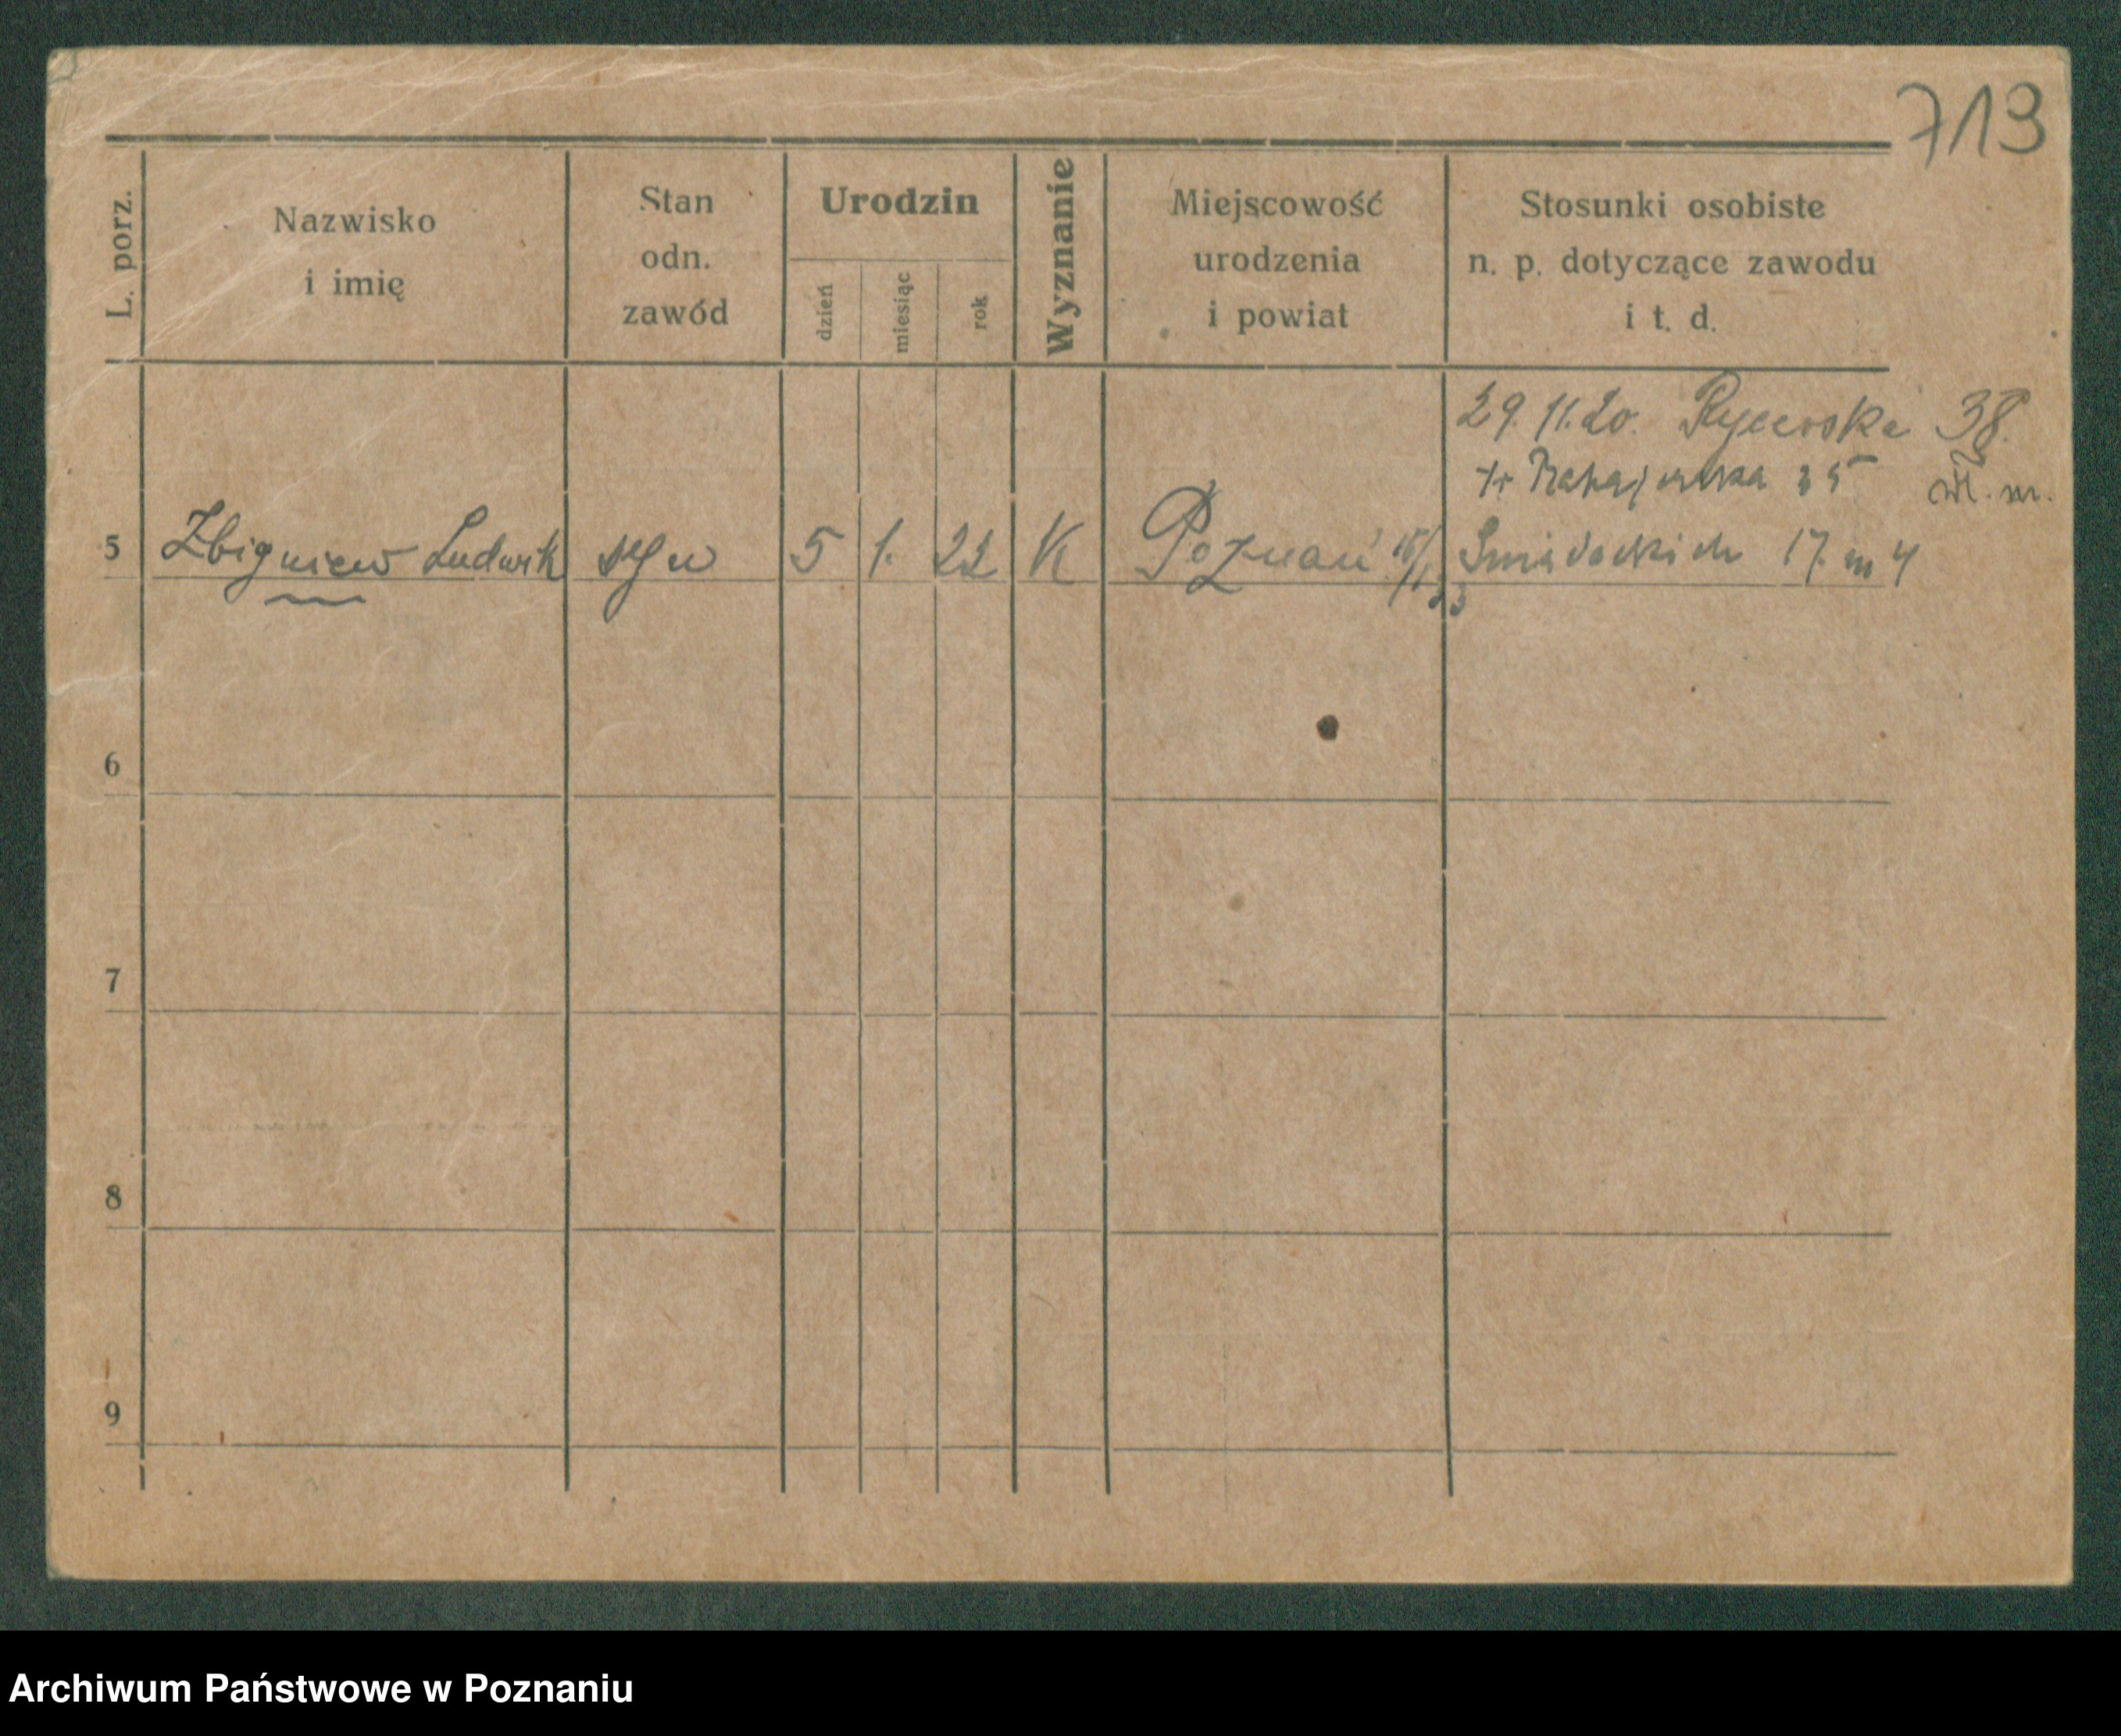 713
L. porz.
Nazwisko
i imię
Stan
odn.
zawód
Urodzin
dzień
miesiąc
rok
Wyznanie
Miejscowość
urodzenia
i powiat
Stosunki osobiste
n. p. dotyczące zawodu
i t. d.
29. 11. 20. Rycerska 38.
35
5 Zbigniew Ludwik syn 5 1. 22 K Poznań Śniadeckich 17 m 4
6
7
8
9
Archiwum Państwowe w Poznaniu